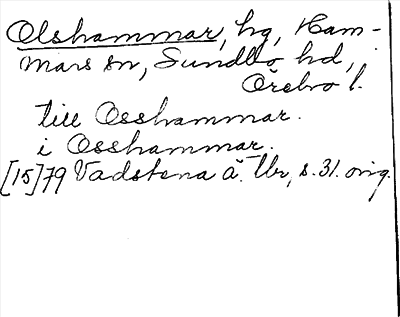 Olshammar, hg, Ham-
mars sn, Sundbo hd,
Örebro l.
till Osshammar.
i Osshammar.
[15]79 Vadstena ä. Ur, s. 31. orig.